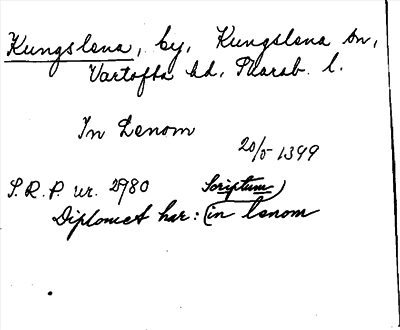 Kungslena, by, Kungslena sn,
Vartofta hd, Skarab. l.
In Lenom
20/5 1399
S.R.P. nr. 2980
Scriptum
Diplomet har: (in lenom